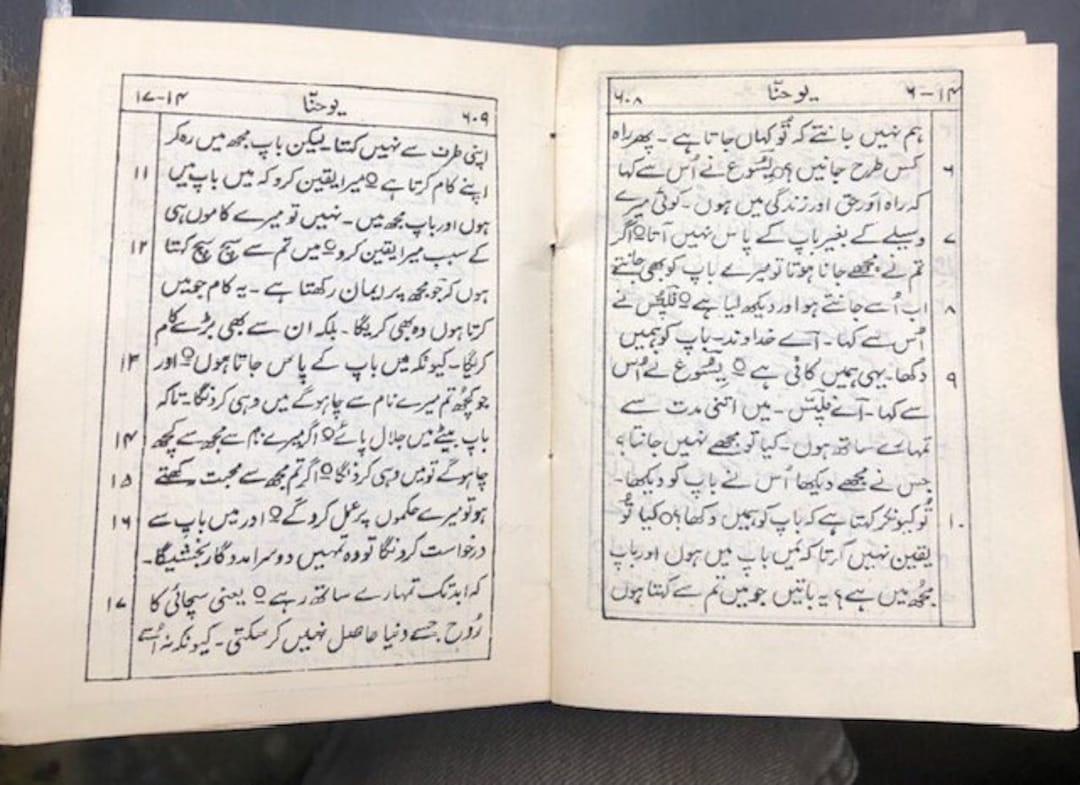 ۶-۱۴ یوحنّا ۶۰۸
ہم نہیں جانتے کہ تُو کہاں جاتا ہے ۔ پھر راہ
۶ کس طرح جانیں؟ o یسُّوع نے اُس سے کہا
کہ راہ اور حق اور زندگی میں ہوں ۔ کوئی میرے
۷ وسیلے کے بغیر باپ کے پاس نہیں آتا o اگر
تم نے مجھے جانا ہوتا تو میرے باپ کو بھی جانتے
۸ اب اُسے جانتے ہو اور دیکھ لیا ہے o فلپّس نے
اُس سے کہا ۔ اَے خداوند ۔ باپ کو ہمیں
۹ دکھا ۔ یہی ہمیں کافی ہے o یسُّوع نے اُس
سے کہا ۔ اَے فلپّس ۔ میں اتنی مدت سے
تمہارے ساتھ ہوں ۔ کیا تو مجھے نہیں جانتا؟
جس نے مجھے دیکھا اُس نے باپ کو دیکھا ۔
۱۰ تُو کیونکر کہتا ہے کہ باپ کو ہمیں دکھا؟ o کیا تُو
یقین نہیں کرتا کہ میں باپ میں ہوں اور باپ
مجُھ میں ہے؟ یہ باتیں جو میں تم سے کہتا ہوں
۱۷-۱۴ یوحنّا ۶۰۹
اپنی طرف سے نہیں کہتا ۔ لیکن باپ مجھ میں رہ کر
۱۱ اپنے کام کرتا ہے o میرا یقین کرو کہ میں باپ میں
ہوں اور باپ مجھ میں ۔ نہیں تو میرے کاموں ہی
۱۲ کے سبب میرا یقین کرو o میں تم سے سچ سچ کہتا
ہوں کہ جو مجھ پر ایمان رکھتا ہے ۔ یہ کام جو میں
کرتا ہوں وہ بھی کریگا ۔ بلکہ ان سے بھی بڑے کام
۱۳ کریگا ۔ کیونکہ میں باپ کے پاس جاتا ہوں o اور
جو کچُھ تم میرے نام سے چاہوگے میں وہی کرونگا ۔ تاکہ
۱۴ باپ بیٹے میں جلال پائے o اگر میرے نام سے مجھ سے کچھ
۱۵ چاہوگے تو میں وہی کرونگا o اگر تم مجھ سے محبت رکھتے
۱۶ ہو تو میرے حکموں پر عمل کروگے o اور میں باپ سے
درخواست کرونگا تو وہ تمہیں دوسرا مددگار بخشیگا ۔
۱۷ کہ ابد تک تمہارے ساتھ رہے o یعنی سچائی کا
رُوح جسے دنیا حاصل نہیں کر سکتی ۔ کیونکہ نہ اُسے